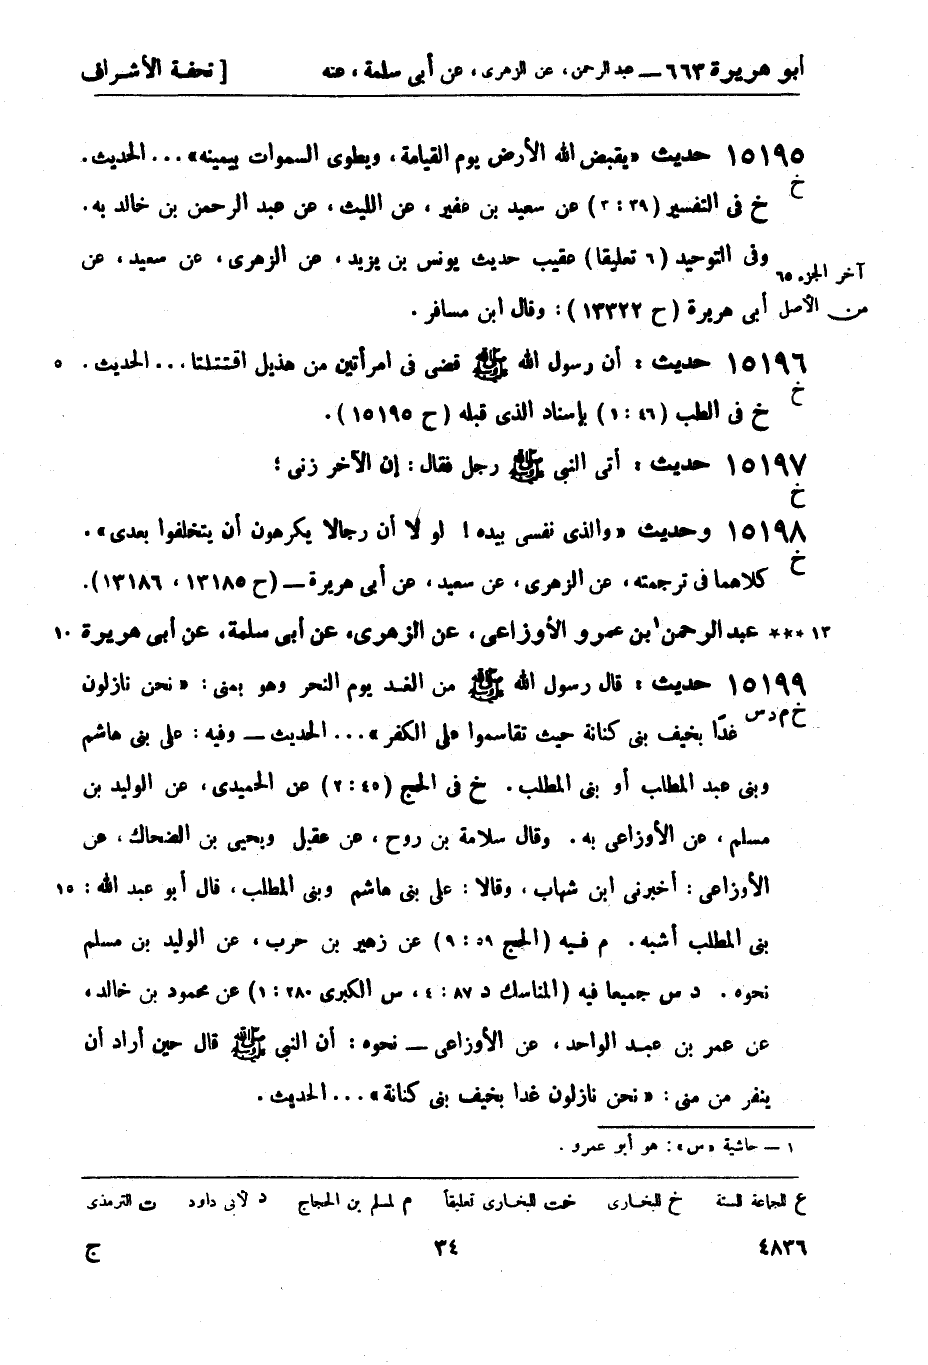 أبو هريرة ٦٦٣ — عبد الرحمن، عن الزهرى، عن أبى سلمة، عنه [ تحفة الأشراف
١٥١٩٥ حديث «يقبض الله الأرض يوم القيامة، ويطوى السموات بيمينه» ... الحديث.
خ
خ فى التفسير (٣٩ : ٣) عن سعيد بن عفير، عن الليث، عن عبد الرحمن بن خالد به.
وفى التوحيد (٦ تعليقا) عقيب حديث يونس بن يزيد، عن الزهرى، عن سعيد، عن
آخر الجزء ٦٥
من الأصل
أبى هريرة (ح ١٣٣٢٢): وقال ابن مسافر.
١٥١٩٦ حديث : أن رسول الله ﷺ قضى فى امرأتين من هذيل اقتتلتا ... الحديث. ٥
خ
خ فى الطب (٤٦ : ١) بإسناد الذى قبله (ح ١٥١٩٥).
١٥١٩٧ حديث : أتى النبى ﷺ رجل فقال: إن الآخر زنى؛
خ
١٥١٩٨ وحديث «والذى نفسى بيده! لو لا أن رجالا يكرهون أن يتخلفوا بعدى».
خ
كلاهما فى ترجمته، عن الزهرى، عن سعيد، عن أبى هريرة — (ح ١٣١٨٥، ١٣١٨٦).
١٣ *** عبد الرحمن١ بن عمرو الأوزاعى، عن الزهرى، عن أبى سلمة، عن أبى هريرة ١٠
١٥١٩٩ حديث : قال رسول الله ﷺ من الغد يوم النحر وهو بمنى: «نحن نازلون
خ م د س
غدًا بخيف بنى كنانة حيث تقاسموا على الكفر» ... الحديث — وفيه: على بنى هاشم
وبنى عبد المطلب أو بنى المطلب. خ فى الحج (٤٥ : ٢) عن الحميدى، عن الوليد بن
مسلم، عن الأوزاعى به. وقال سلامة بن روح، عن عقيل ويحيى بن الضحاك، عن
الأوزاعى: أخبرنى ابن شهاب، وقالا: على بنى هاشم وبنى المطلب، قال أبو عبد الله: ١٥
بنى المطلب أشبه. م فيه (الحج ٥٩ : ٩) عن زهير بن حرب، عن الوليد بن مسلم
نحوه. د س جميعا فيه (المناسك د ٨٧ : ٤، س الكبرى ٢٨٠ : ١) عن محمود بن خالد،
عن عمر بن عبد الواحد، عن الأوزاعى — نحوه: أن النبى ﷺ قال حين أراد أن
ينفر من منى: «نحن نازلون غدا بخيف بنى كنانة» ... الحديث.
١ — حاشية «س»: هو أبو عمرو.
ع للجماعة الستة خ للبخارى خت للبخارى تعليقاً م لمسلم بن الحجاج د لأبى داود ت الترمذى
٤٨٣٦ ٣٤ ج